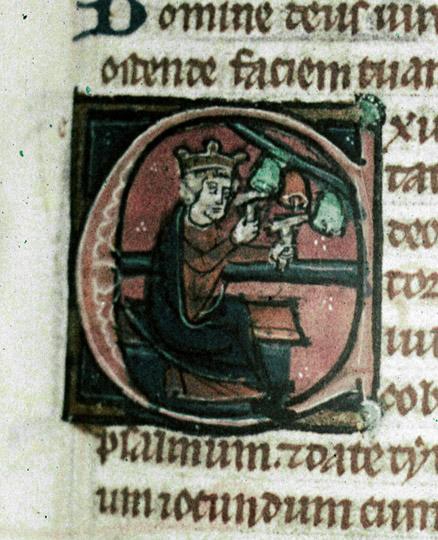 Domine deus uir
ostende faciem tuam
E xu
tat
deo
toz
iu
cob
psalmum. ⁊ date ty
um iocundum cum